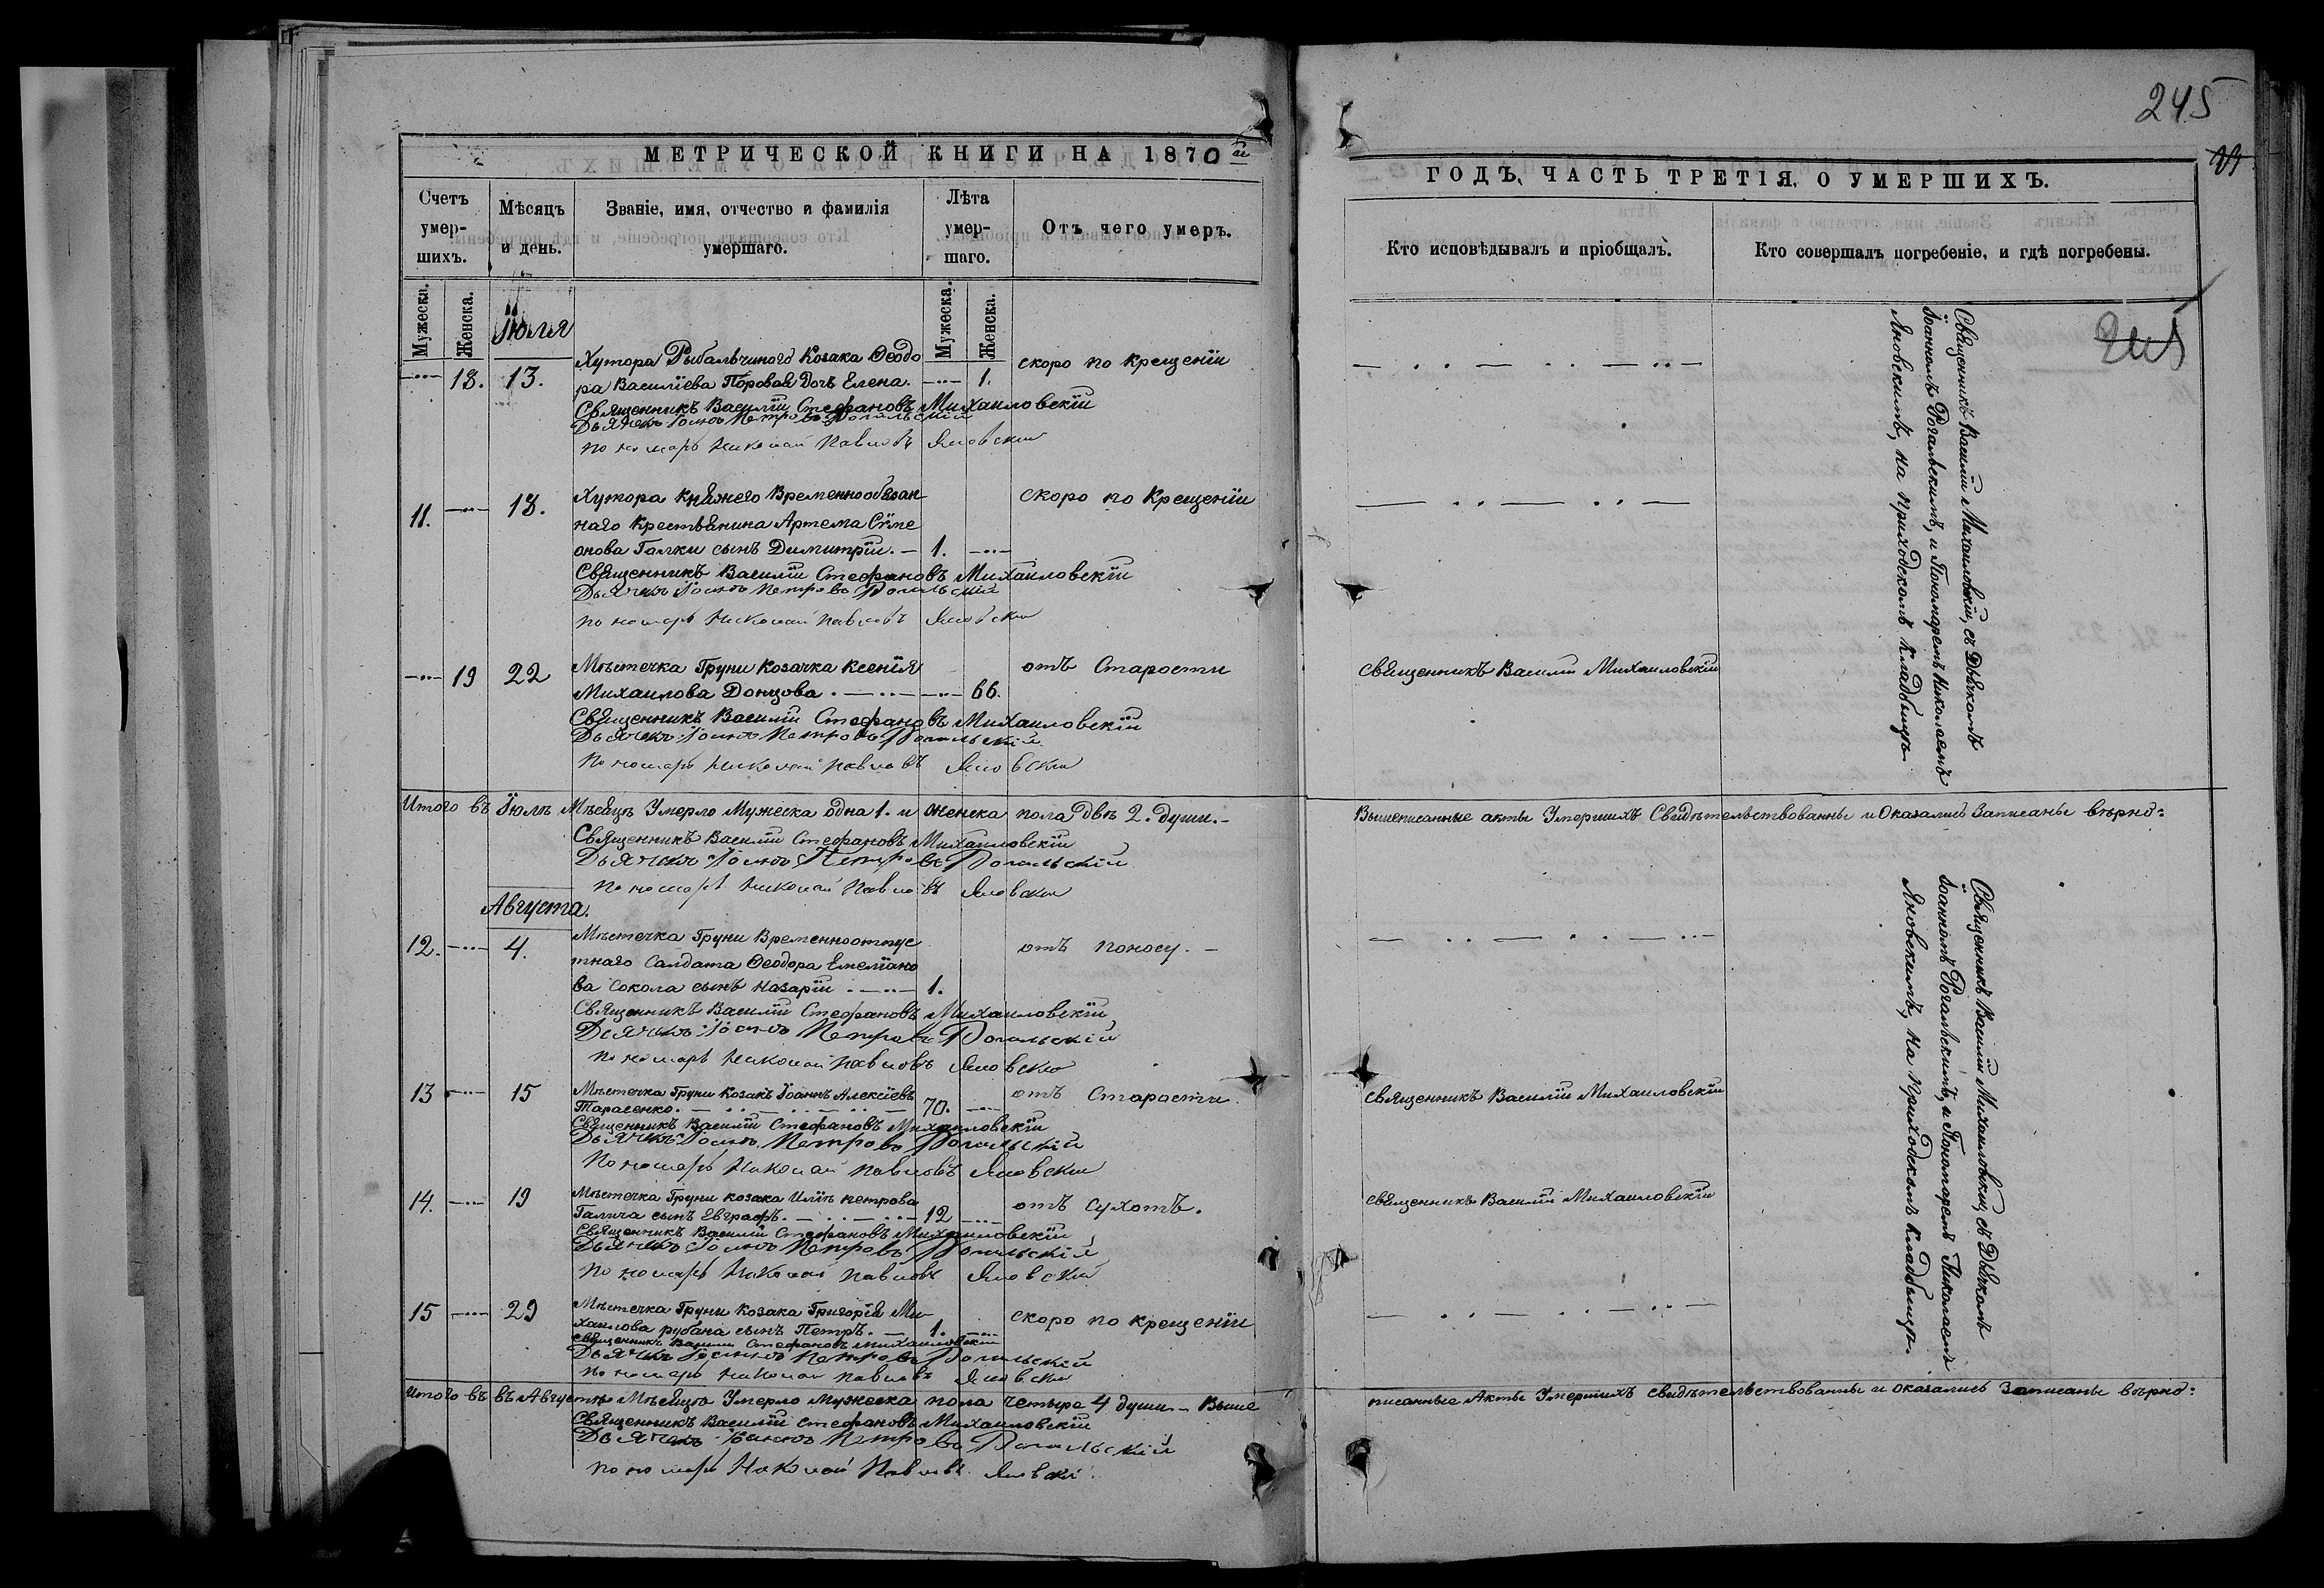 МЕТРИЧЕСКОЙ КНИГИ НА 1870 й
Счетъ умершихъ.
Мѣсяцъ и день.
Званіе, имя, отчество и фамилія умершаго.
Лѣта умершаго.
Отъ чего умеръ.
Мужеска.
Женска.
Мужеска.
Женска.
Іюля
Хутора Рыбальчиного Козака Ѳеодо
скоро по крещеніи
18. 13. ра Василіева Поровая Дочь Елена. 1.
Священникъ Василій Стефановъ Михаиловскій
Дьячекъ Іоаннъ Петровъ Рогальскій
Пономарь Николай Павловъ Яновскій
Хутора Княжего Временнообязан
скоро по Крещеніи
11. 18.
наго Крестьянина Артема Сѵме
онова Галки сынъ Димитрій. 1.
Священникъ Василій Стефановъ Михаиловскій
Дьячекъ Іоаннъ Петровъ Рогальскій
Пономарь Николай Павловъ Яновскій
19 22 Мѣстечка Груни Козачка Ксенія
отъ Старости
Михаилова Донцова. 66.
Священникъ Василій Стефановъ Михаиловскій
Дьячекъ Іоаннъ Петровъ Рогальскій
Пономарь Николай Павловъ Яновскій
Итого въ Іюлѣ Мѣсяцѣ Умерло Мужеска одна 1. и женска пола двѣ 2. души.
Священникъ Василій Стефановъ Михаиловскій
Дьячекъ Іоаннъ Петровъ Рогальскій
Пономарь Николай Павловъ Яновскій
Августа.
12. 4. Мѣстечка Груни Временноотпус
отъ поносу.
тнаго Салдата Ѳеодора Емеліано
ва Сокола сынъ Назарій. 1.
Священникъ Василій Стефановъ Михаиловскій
Дьячекъ Іоаннъ Петровъ Рогальскій
Пономарь Николай Павловъ Яновскій
13 15 Мѣстечка Груни Козакъ Іоаннъ Алексіевъ
отъ Старости.
Тарасенко. 70.
Священникъ Василій Стефановъ Михаиловскій
Дьячекъ Іоаннъ Петровъ Рогальскій
Пономарь Николай Павловъ Яновскій
14. 19 Мѣстечка Груни козака Иліи петрова
отъ сухотъ.
Галича сынъ Евграфъ. 12
Священникъ Василій Стефановъ Михаиловскій
Дьячекъ Іоаннъ Петровъ Рогальскій
Пономарь Николай Павловъ Яновскій
15 29 Мѣстечка Груни Козака Григорія Ми
скоро по крещеніи
хаилова рубана сынъ Петръ. 1.
Священникъ Василій Стефановъ Михаиловскій
Дьячекъ Іоаннъ Петровъ Рогальскій
Пономарь Николай Павловъ Яновскій
Итого въ въ Августѣ Мѣсяцѣ Умерло мужеска пола четыре 4 души. Выше
Священникъ Василій Стефановъ Михаиловскій
Дьячекъ Іоаннъ Петровъ Рогальскій
Пономарь Николай Павловъ Яновскій
245
ГОДЪ, ЧАСТЬ ТРЕТІЯ, О УМЕРШИХЪ.
Кто исповѣдывалъ и пріобщалъ.
Кто совершалъ погребеніе, и гдѣ погребены.
Священникъ Василій Михаиловскій, съ Дьячкомъ
Іоанномъ Рогальскимъ, и Пономаремъ Николаемъ
Яновскимъ, на приходскомъ кладбищѣ
Священникъ Василій Михаиловскій
Вышеписанные акты Умершихъ Свидѣтельствованны и Оказались Записаны вѣрно:
Священникъ Василій Михаиловскій, съ Дьячкомъ
Іоанномъ Рогальскимъ, и Пономаремъ Николаемъ
Яновскимъ, на приходскомъ кладбищѣ.
Священникъ Василій Михаиловскій
Священникъ Василій Михаиловскій
писанные Акты Умершихъ свидѣтельствованны и оказались Записаны вѣрно: